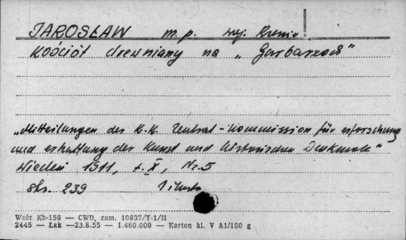 JAROSŁAW m.p. woj. Rzeszów
Kościół drewniany na „Garbarzach"
„Mitteilungen der K.K. Zentral-Kommission für Erforschung
und Erhaltung der Kunst und historischen Denkmale"
Wiedeń 1911, t. X, Nr. 5
str. 239
Wzór Kb-158 — CWD, zam. 10837/T-1/II
2445 — Łak — 23.8.55 — 1.460.000 — Karton kl. V A1/180 g